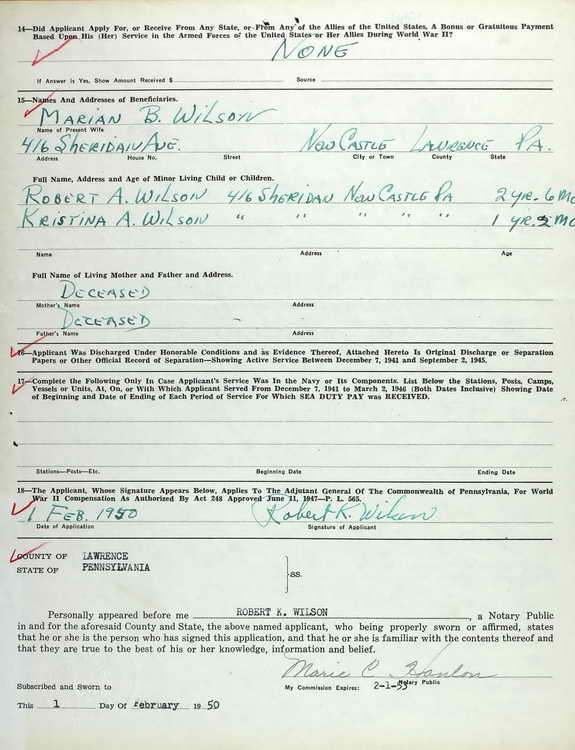 14—Did Applicant Apply For, or Receive From Any State, or From Any of the Allies of the United States, A Bonus or Gratuitous Payment
Based Upon His (Her) Service in the Armed Forces of the United States or Her Allies During World War II?
NONE
If Answer is Yes, Show Amount Received $ Source
15—Names And Addresses of Beneficiaries.
MARIAN B. WILSON
Name of Present Wife
416 SHERIDAN AVE. NEW CASTLE LAWRENCE PA.
Address House No. Street City or Town County State
Full Name, Address and Age of Minor Living Child or Children.
ROBERT A. WILSON 416 SHERIDAN NEW CASTLE PA 2 YR. 6 MO
KRISTINA A. WILSON " " " " " 1 YR. 2 MO
Name Address Age
Full Name of Living Mother and Father and Address.
DECEASED
Mother's Name Address
DECEASED
Father's Name Address
16—Applicant Was Discharged Under Honorable Conditions and as Evidence Thereof, Attached Hereto Is Original Discharge or Separation
Papers or Other Official Record of Separation—Showing Active Service Between December 7, 1941 and September 2, 1945.
17—Complete the Following Only In Case Applicant's Service Was In the Navy or Its Components. List Below the Stations, Posts, Camps,
Vessels or Units, At, On, or With Which Applicant Served From December 7, 1941 to March 2, 1946 (Both Dates Inclusive) Showing Date
of Beginning and Date of Ending of Each Period of Service For Which SEA DUTY PAY was RECEIVED.
Stations—Posts—Etc. Beginning Date Ending Date
18—The Applicant, Whose Signature Appears Below, Applies To The Adjutant General Of The Commonwealth of Pennsylvania, For World
War II Compensation As Authorized By Act 248 Approved June 11, 1947—P. L. 565.
1 FEB. 1950 Robert K. Wilson
Date of Application Signature of Applicant
COUNTY OF LAWRENCE
STATE OF PENNSYLVANIA
ss.
Personally appeared before me ROBERT K. WILSON, a Notary Public
in and for the aforesaid County and State, the above named applicant, who being properly sworn or affirmed, states
that he or she is the person who has signed this application, and that he or she is familiar with the contents thereof and
that they are true to the best of his or her knowledge, information and belief.
Marie C. Hanlon
Notary Public
Subscribed and Sworn to My Commission Expires: 2-1-53
This 1 Day Of February 19 50